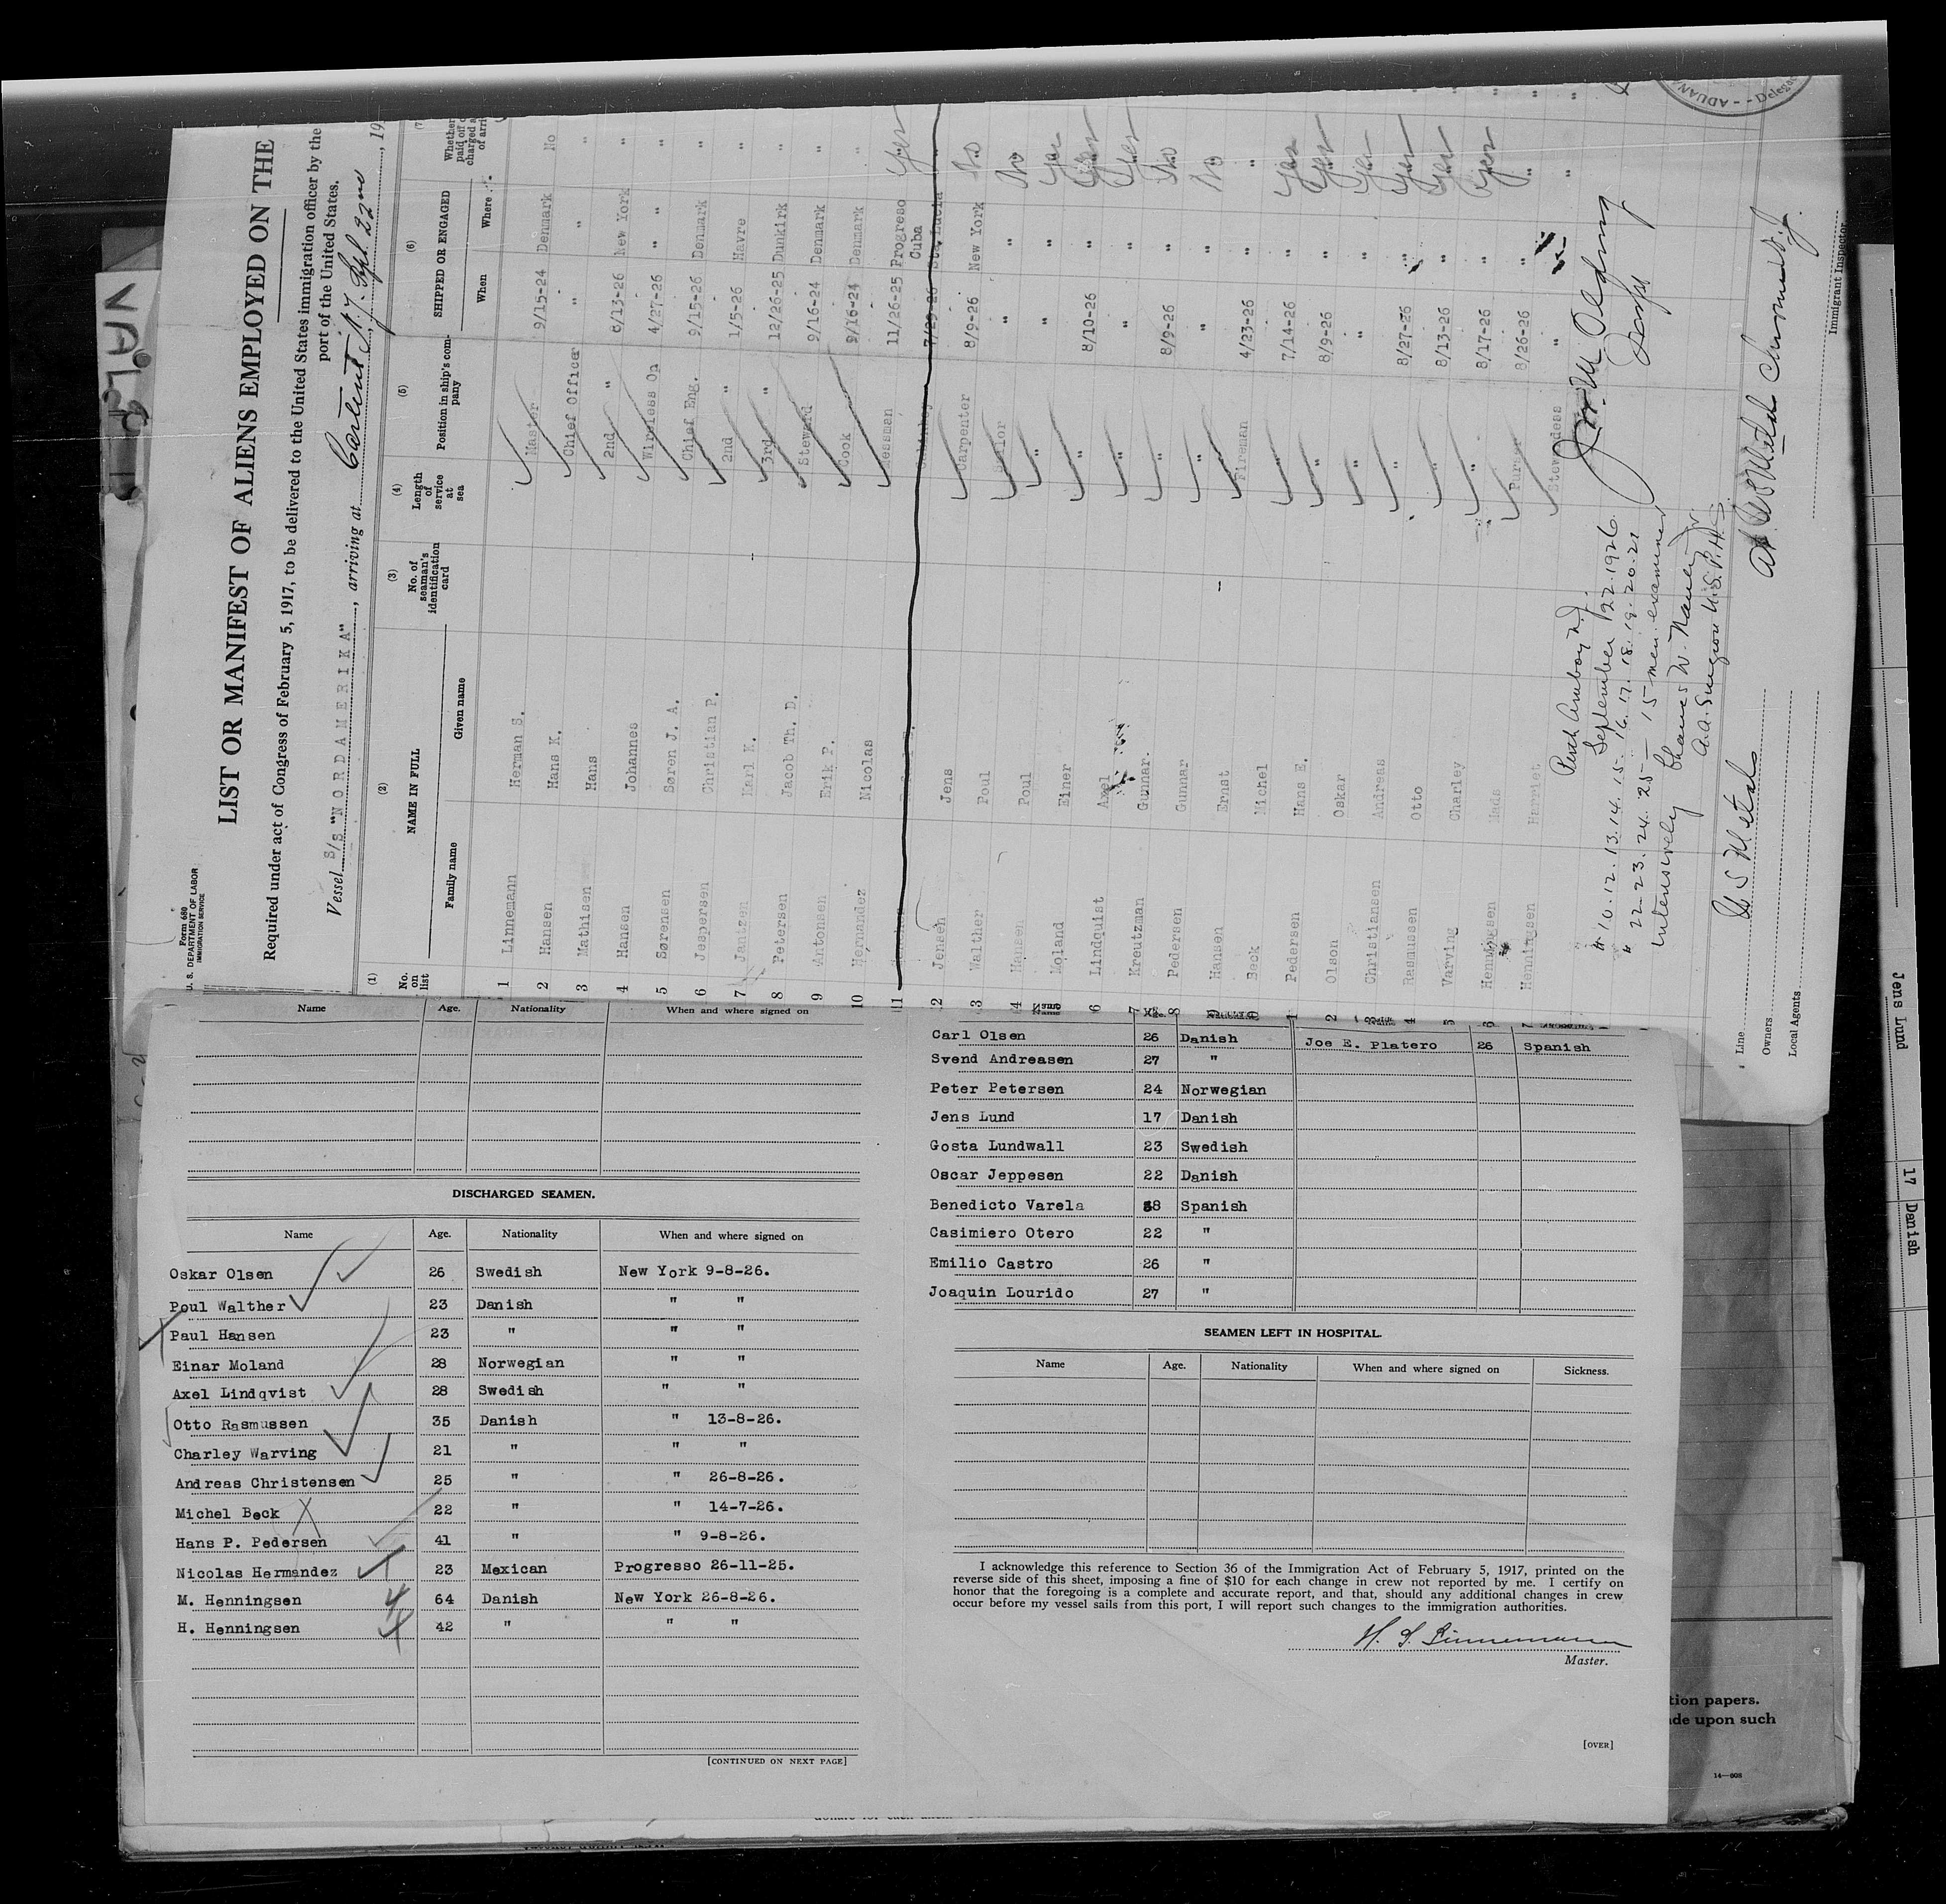 Form 680
U. S. DEPARTMENT OF LABOR
IMMIGRATION SERVICE
LIST OR MANIFEST OF ALIENS EMPLOYED ON THE
Required under act of Congress of February 5, 1917, to be delivered to the United States immigration officer by the
port of the United States.
Vessel S/S "NORDAMERIKA", arriving at Carteret N.J. Sept. 22nd, 19
(1) (2) (3) (4) (5) (6) (7)
No. on list NAME IN FULL No. of seaman's identification card Length of service at sea Position in ship's company SHIPPED OR ENGAGED
Family name Given name When Where
1 Linnemann Herman S. Master 9/15-24 Denmark No
2 Hansen Hans K. Chief Officer " " "
3 Mathisen Hans 2nd " 6/13-26 New York "
4 Hansen Johannes Wireless Op 4/27-26 " "
5 Sørensen Søren J. A. Chief Eng. 9/15-26 Denmark "
6 Jespersen Christian P. 2nd " 1/5-26 Havre "
7 Jantzen Karl K. 3rd " 12/26-25 Dunkirk "
8 Petersen Jacob Th. D. Steward 9/16-24 Denmark "
9 Antonsen Erik P. Cook 9/16-24 Denmark "
10 Hernandez Nicolas Messman 11/26-25 Progreso Yes
11 7/29-26 Cuba Sta. Lucia
12 Jensen Jens Carpenter 8/9-26 New York No
13 Walther Poul Sailor " " No
14 Hansen Poul " " " Yes
Moland Einer " 8/10-26 " Yes
6 Lindquist Axel " " " Yes
7 Kreutzman Gunnar. " 8/9-26 " No
8 Pedersen Gunnar " " " No
Hansen Ernst Fireman 4/23-26 " "
Beck Michel " 7/14-26 " Yes
1 Pedersen Hans E. " 8/9-26 " Yes
2 Olson Oskar " " " Yes
Christiansen Andreas " 8/27-26 " Yes
4 Rasmussen Otto " 8/13-26 " Yes
Varving Charley " 8/17-26 " Yes
Henningsen Mads Purser 8/26-26 " "
Henningsen Harriet Stewardess " " "
Perth Amboy N.J.
September 22. 1926
# 10. 12. 13. 14. 15. 16. 17. 18. 19. 20. 21
" 22. 23. 24. 25 — 15 men examined
Intensively
A. A. Surgeon U.S.P.H.S.
Line U S Metals
Owners
Local Agents
Immigrant Inspector
ADUAN
Delegac
Name Age. Nationality When and where signed on
DISCHARGED SEAMEN.
Name Age. Nationality When and where signed on
Oskar Olsen 26 Swedish New York 9-8-26.
Poul Walther 23 Danish " "
Paul Hansen 23 " " "
Einar Moland 28 Norwegian " "
Axel Lindqvist 28 Swedish " "
Otto Rasmussen 35 Danish " 13-8-26.
Charley Warving 21 " " "
Andreas Christensen 25 " " 26-8-26.
Michel Beck 22 " " 14-7-26.
Hans P. Pedersen 41 " " 9-8-26.
Nicolas Hermandez 23 Mexican Progresso 26-11-25.
M. Henningsen 64 Danish New York 26-8-26.
H. Henningsen 42 " " "
[CONTINUED ON NEXT PAGE]
Carl Olsen 26 Danish Joe E. Platero 26 Spanish
Svend Andreasen 27 "
Peter Petersen 24 Norwegian
Jens Lund 17 Danish
Gosta Lundwall 23 Swedish
Oscar Jeppesen 22 Danish
Benedicto Varela 38 Spanish
Casimiero Otero 22 "
Emilio Castro 26 "
Joaquin Lourido 27 "
SEAMEN LEFT IN HOSPITAL.
Name Age. Nationality When and where signed on Sickness.
I acknowledge this reference to Section 36 of the Immigration Act of February 5, 1917, printed on the
reverse side of this sheet, imposing a fine of $10 for each change in crew not reported by me. I certify on
honor that the foregoing is a complete and accurate report, and that, should any additional changes in crew
occur before my vessel sails from this port, I will report such changes to the immigration authorities.
H. S. Linnemann
Master.
[OVER]
tion papers.
ade upon such
14—608
Jens Lund 17 Danish